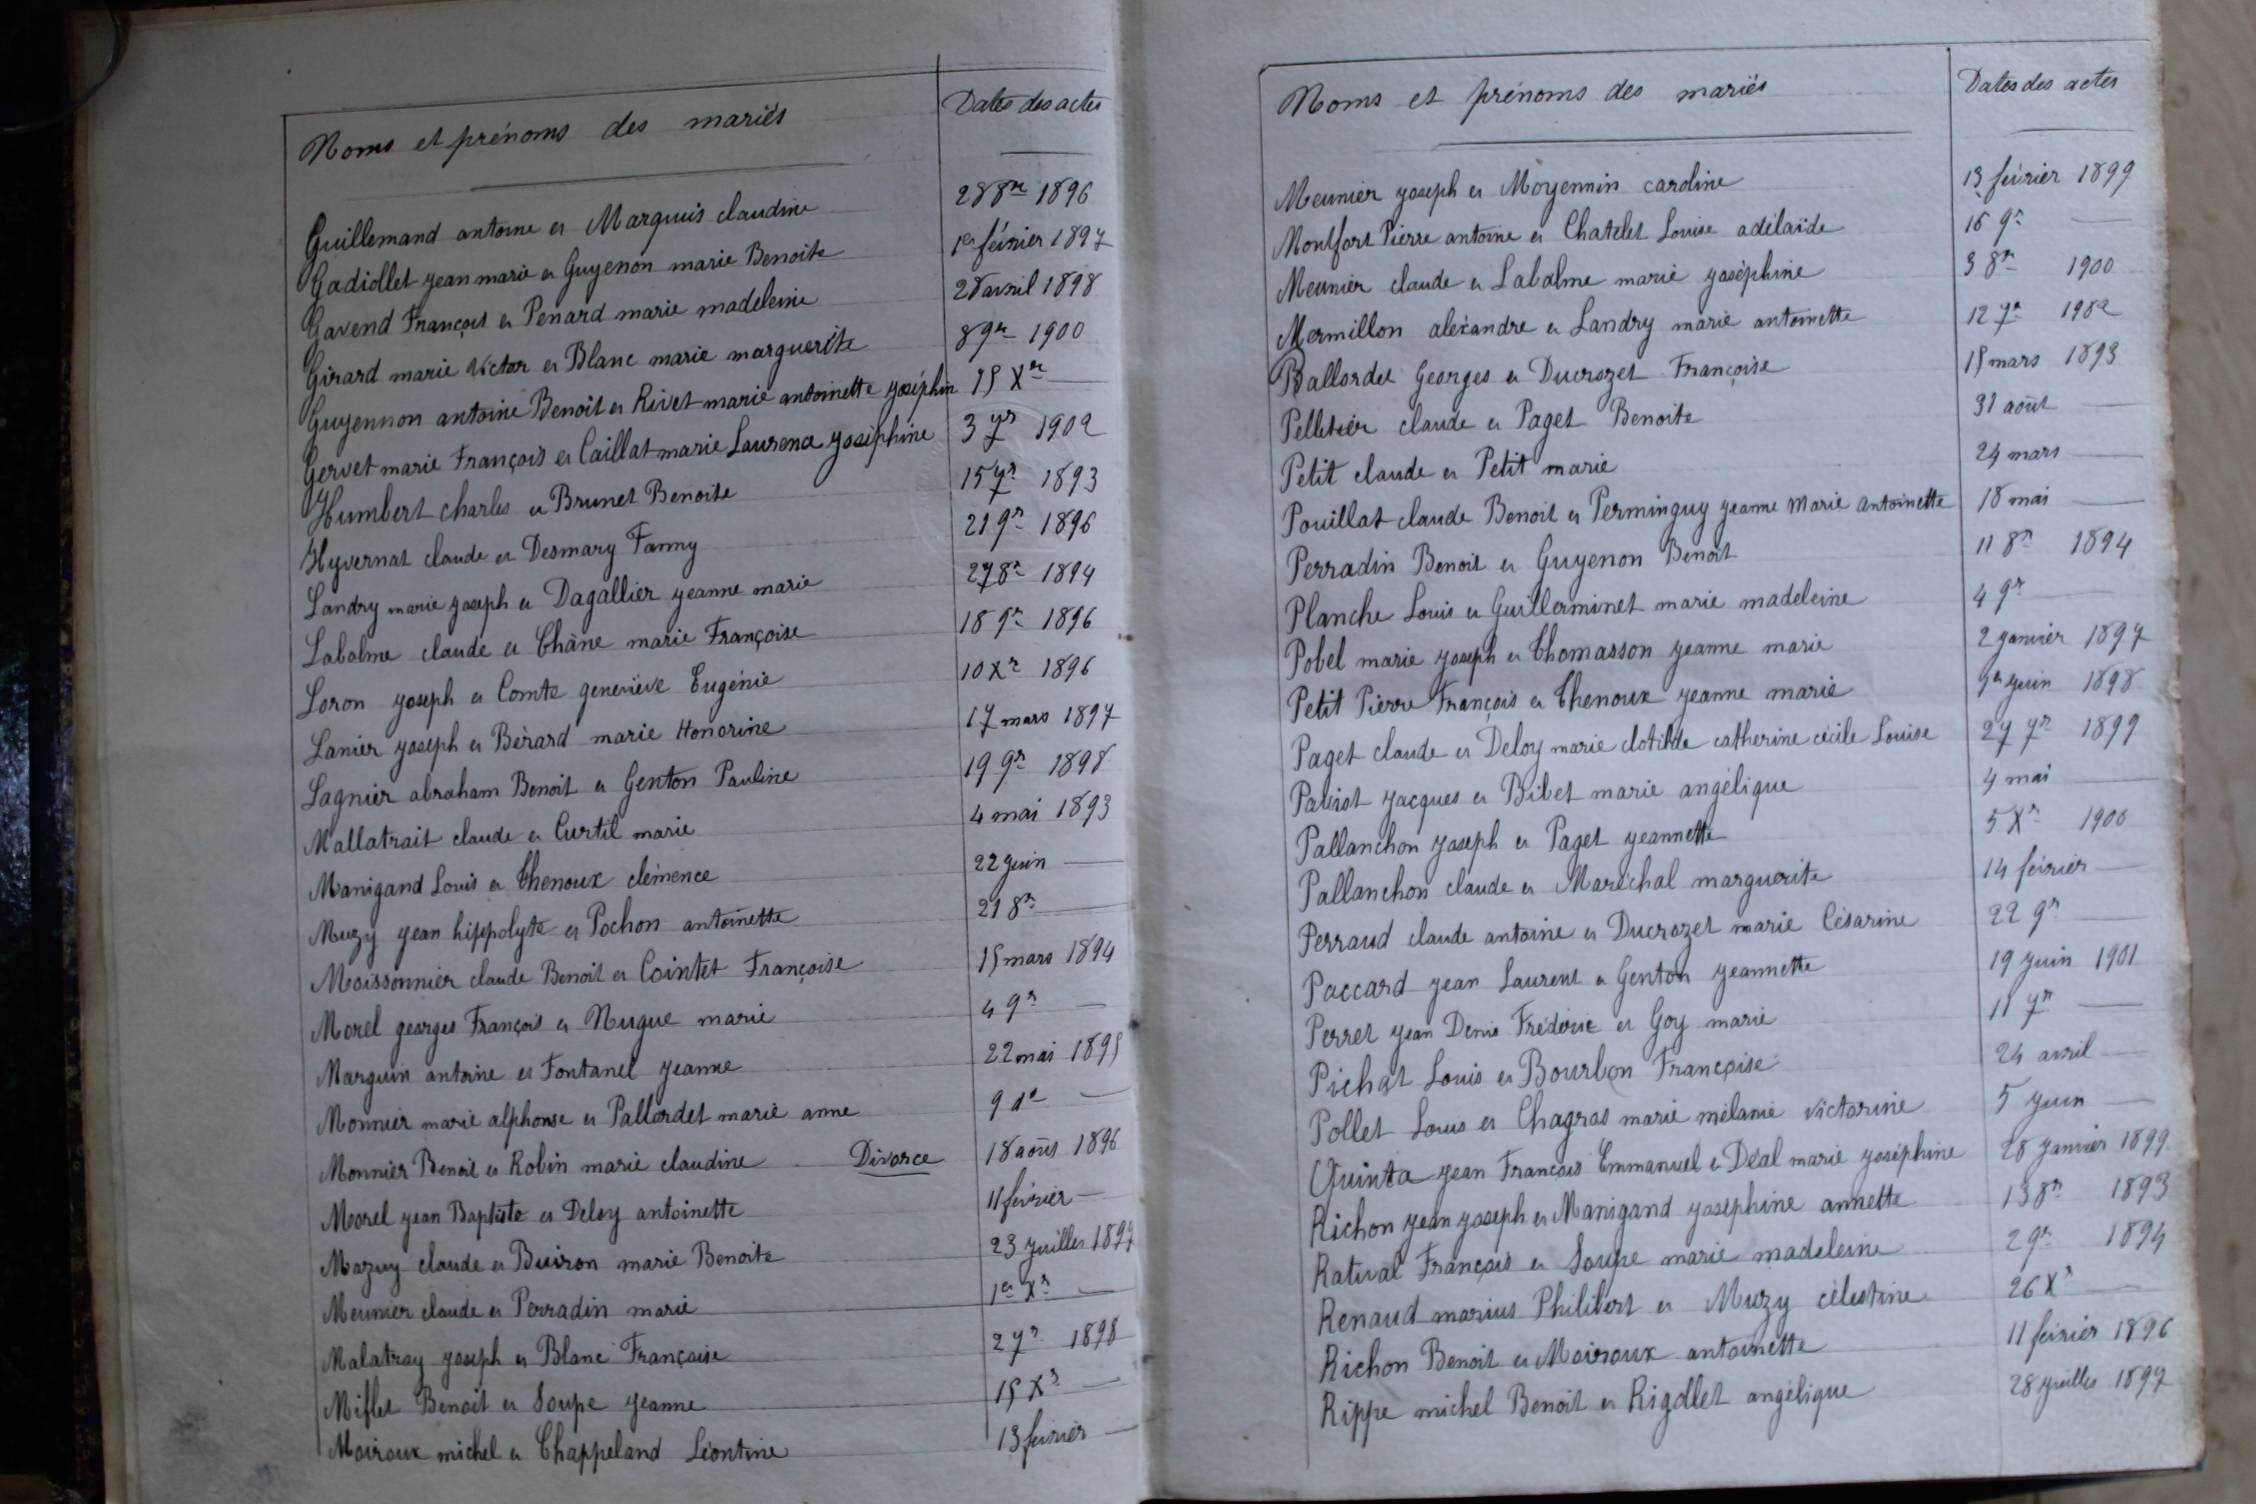 Noms et prénoms des mariés Dates des actes
Guillemand antoine et Marquis claudine 28 8re 1896
Gadiollet jean marie et Guyenon marie Benoite 1er février 1897
Gavend François et Penard marie madeleine 28 avril 1898
Girard marie victor et Blanc marie marguerite 8 9re 1900
Guyennon antoine Benoit et Rivet marie antoinette joséphin 15 Xre —
Gervet marie François et Caillat marie Laurence joséphine 3 7re 1902
Humbert charles et Brunet Benoite 15 7re 1893
Hyvernat claude et Desmary Fanny 21 9re 1896
Landry marie joseph et Dagallier jeanne marie 27 8re 1894
Labalme claude et Chàne marie Françoise 18 9re 1896
Loron joseph et Comte geneviève Eugénie 10 Xre 1896
Lanier joseph et Bérard marie Honorine 17 mars 1897
Lagnier abraham Benoit et Genton Pauline 19 9re 1898
Mallatrait claude et Curtil marie 4 mai 1893
Manigand Louis et Chenoux clémence 22 juin —
Muzy jean hippolyte et Pochon antoinette 21 8re —
Moissonnier claude Benoit et Cointet Françoise 15 mars 1894
Morel georges François et Nugue marie 4 9re —
Marguin antoine et Fontanel jeanne 22 mai 1895
Monnier marie alphonse et Pallordet marie anne 9 do —
Monnier Benoit et Robin marie claudine Divorce 18 août 1896
Morel jean Baptiste et Deloy antoinette 11 février —
Mazuy claude et Buiron marie Benoite 23 juillet 1897
Meunier claude et Perradin marie 1er Xre —
Malatray joseph et Blanc Françoise 2 7re 1898
Miflet Benoit et Soupe jeanne 15 Xre —
Moiroux michel et Chappeland Léontine 13 février —
Noms et prénoms des mariés Dates des actes
Meunier joseph et Moyennin caroline 13 février 1899
Montfort Pierre antoine et Chatelet Louise adélaïde 16 9re —
Meunier claude et Labalme marie joséphine 3 8re 1900
Mermillon alexandre et Landry marie antoinette 12 7re 1902
Ballordet Georges et Ducrozet Françoise 15 mars 1893
Pelletier claude et Paget Benoite 31 août —
Petit claude et Petit marie 24 mars —
Pouillat claude Benoit et Perminguy jeanne Marie Antoinette 18 mai —
Perradin Benoit et Guyenon Benoit 11 8re 1894
Planche Louis et Guillerminet marie madeleine 4 9re —
Pobel marie joseph et Thomasson jeanne marie 2 janvier 1897
Petit Pierre François et Chenoux jeanne marie juin 1898
Paget claude et Deloy marie clotilde catherine cécile Louise 27 7re 1899
Paviot jacques et Bibet marie angélique 4 mai —
Pallanchon joseph et Paget jeannette 5 Xre 1900
Pallanchon claude et Maréchal marguerite 14 février —
Perraud claude antoine et Ducrozet marie Césarine 22 9re —
Paccard jean Laurent et Genton jeannette 19 juin 1901
Perret jean Denis Frédéric et Goy marie 11 7re —
Pichat Louis et Bourbon Françoise 24 avril —
Pollet Louis et Chagras marie mélanie victorine 5 juin —
Quinta jean François Emmanuel et Déal marie joséphine 28 janvier 1899
Richon jean joseph et Manigand joséphine annette 13 8re 1893
Ratival François et Soupe marie madeleine 2 9re 1894
Renaud marius Philibert et Muzy célestine 26 Xre —
Richon Benoit et Moiroux antoinette 11 février 1896
Rippe michel Benoit et Rigollet angélique 28 juillet 1897